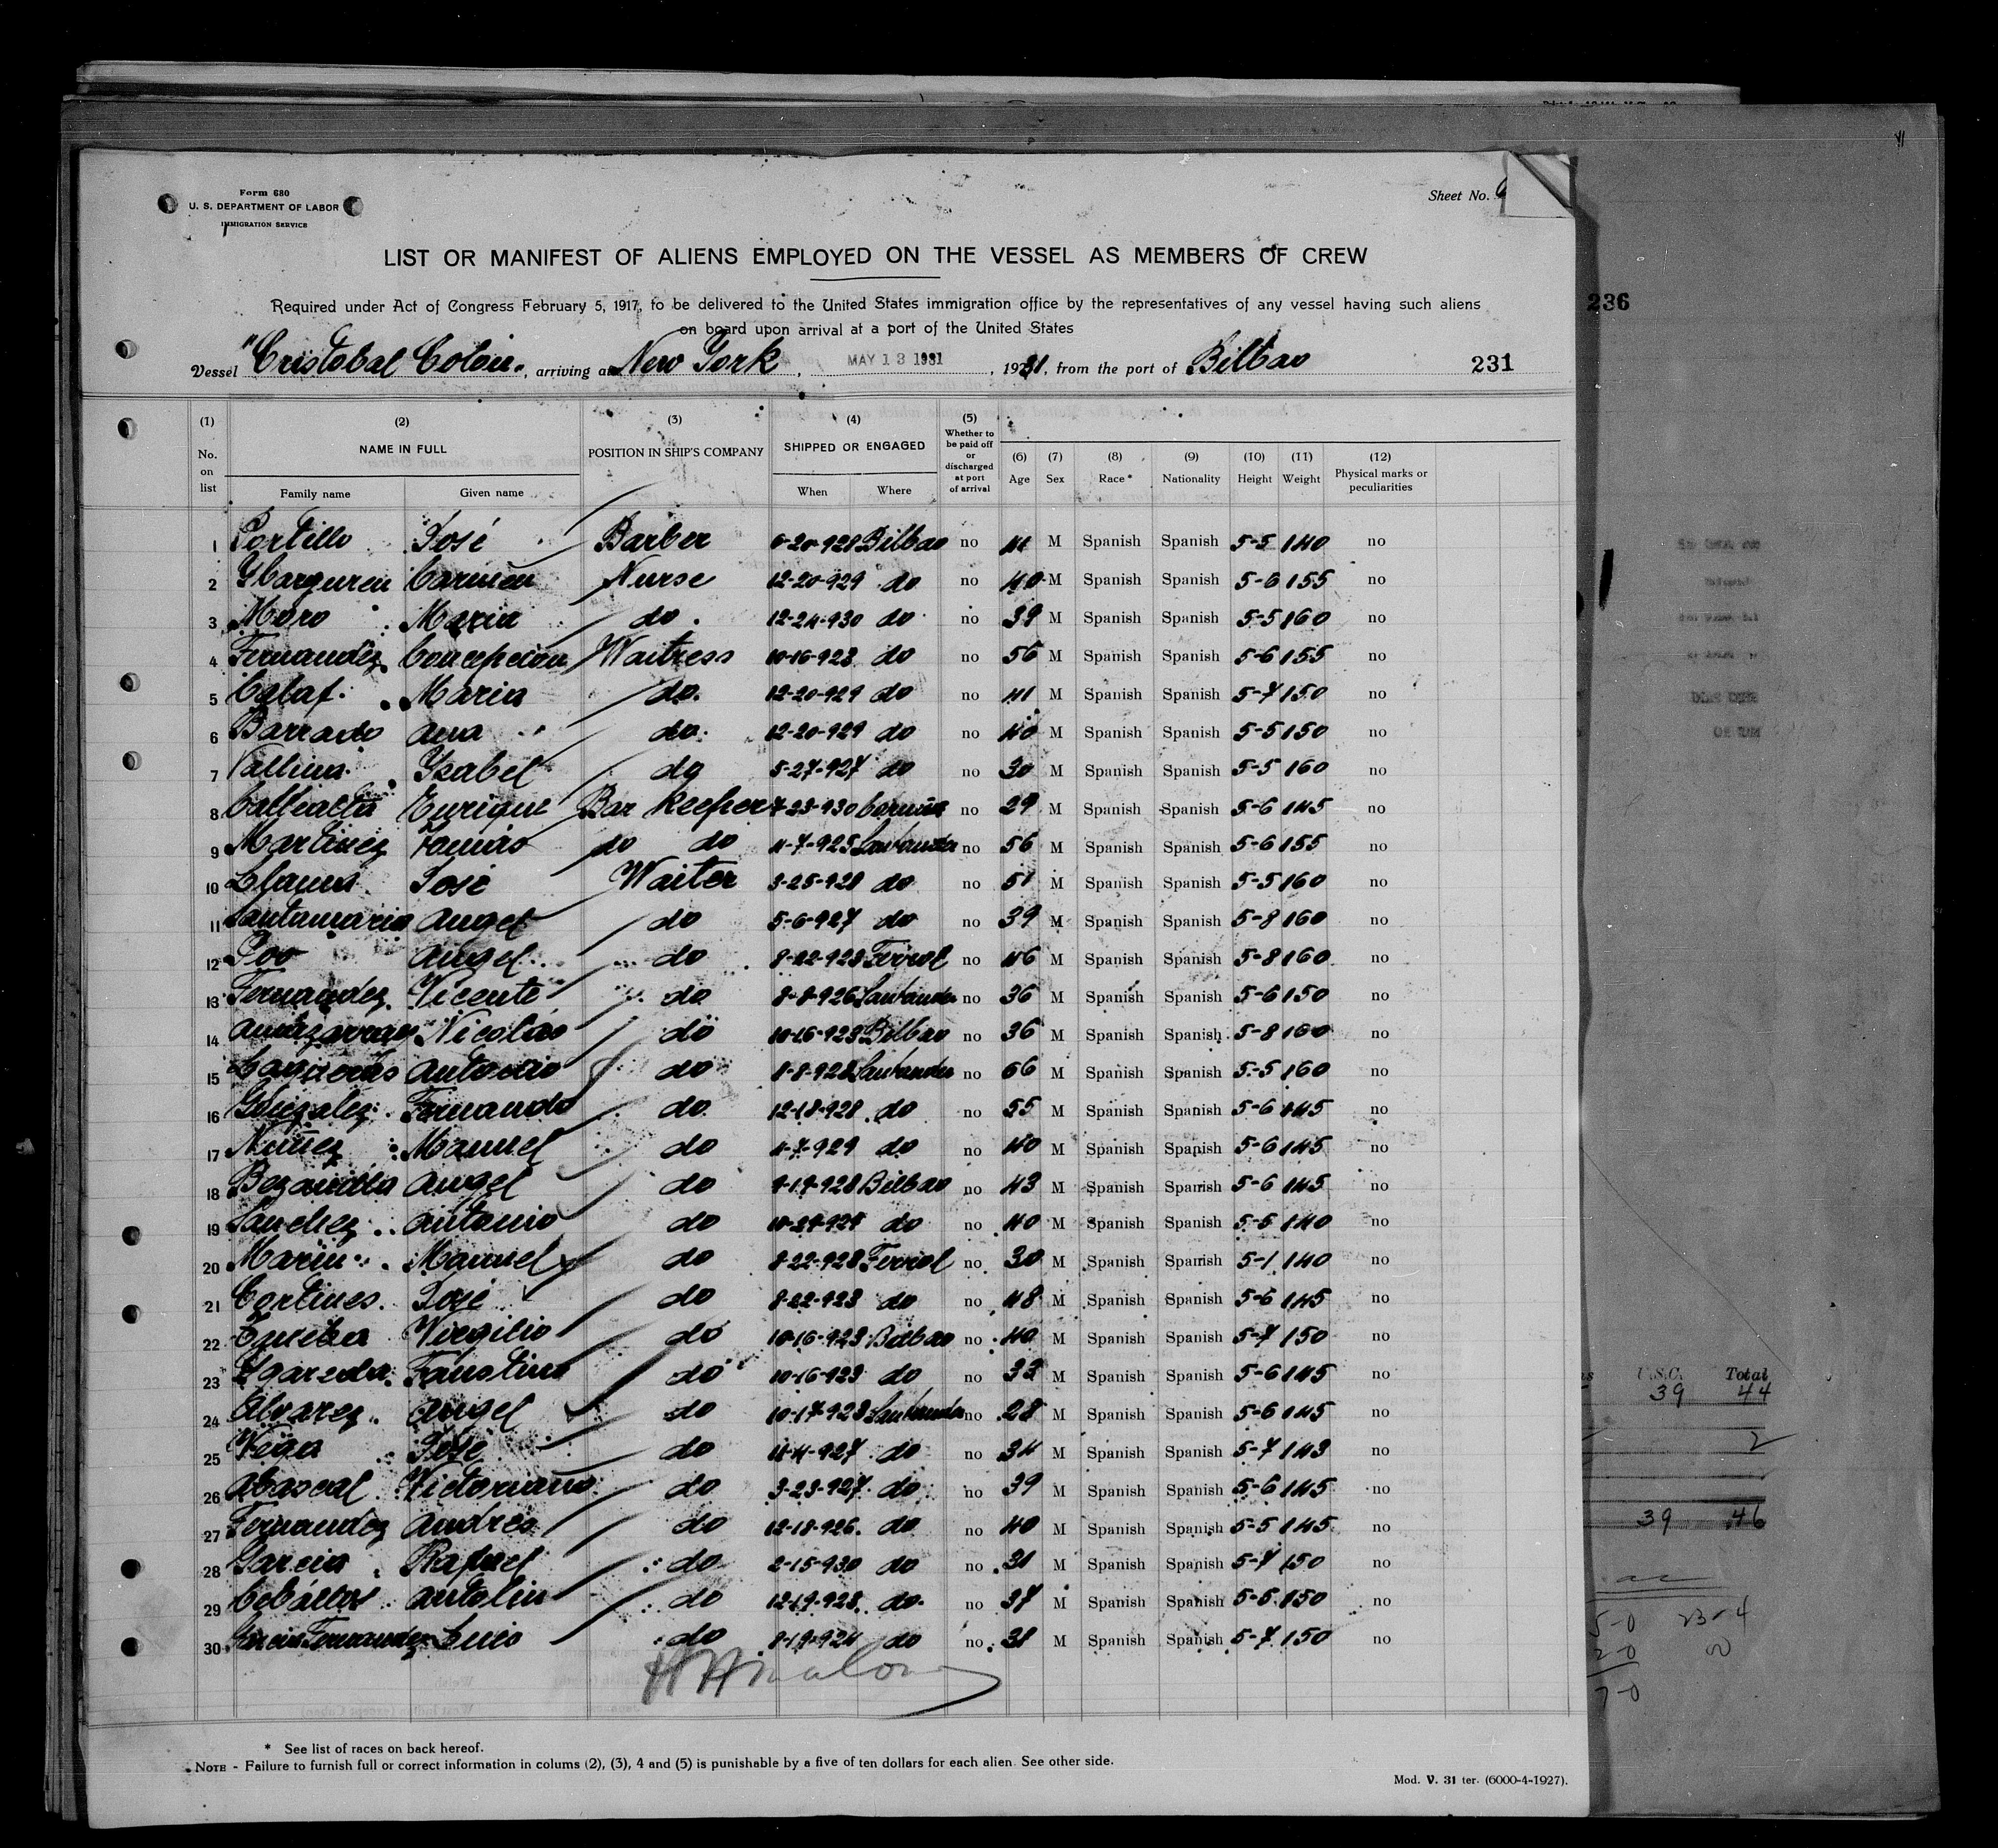 Form 680
U. S. DEPARTMENT OF LABOR
IMMIGRATION SERVICE
Sheet No.
LIST OR MANIFEST OF ALIENS EMPLOYED ON THE VESSEL AS MEMBERS OF CREW
Required under Act of Congress February 5, 1917, to be delivered to the United States immigration office by the representatives of any vessel having such aliens
on board upon arrival at a port of the United States
236
Vessel "Cristobal Colón", arriving at New York, MAY 13 1931, 1931, from the port of Bilbao 231
(1) No. on list (2) NAME IN FULL Family name Given name (3) POSITION IN SHIP'S COMPANY (4) SHIPPED OR ENGAGED When Where (5) Whether to be paid off or discharged at port of arrival (6) Age (7) Sex (8) Race* (9) Nationality (10) Height (11) Weight (12) Physical marks or peculiarities
1 Portillo José Barber 6-20-928 Bilbao no 41 M Spanish Spanish 5-5 140 no
2 Ybarguren Carmen Nurse 12-20-929 do no 40 M Spanish Spanish 5-6 155 no
3 Moro Maria do 12-24-930 do no 39 M Spanish Spanish 5-5 160 no
4 Fernandez Concepcion Waitress 10-16-923 do no 56 M Spanish Spanish 5-6 155 no
5 Calaf Maria do. 12-20-929 do no 41 M Spanish Spanish 5-7 150 no
6 Barrado Ana do. 12-20-929 do no 40 M Spanish Spanish 5-5 150 no
7 Vallina Ysabel do 5-27-927 do no 30 M Spanish Spanish 5-5 160 no
8 Enrique Bar Keeper 7-23-930 Coruña no 29 M Spanish Spanish 5-6 145 no
9 Martinez Tomás do do 4-7-925 Santander no 56 M Spanish Spanish 5-6 155 no
10 Llama José Waiter 3-25-928 do no 51 M Spanish Spanish 5-5 160 no
11 Santamaria Angel do 5-6-927 do no 39 M Spanish Spanish 5-8 160 no
12 Poo Angel do 8-22-923 Ferrol no 46 M Spanish Spanish 5-8 160 no
13 Fernandez Vicente do 8-8-926 Santander no 36 M Spanish Spanish 5-6 150 no
14 Nicolás do 10-16-923 Bilbao no 36 M Spanish Spanish 5-8 160 no
15 Antonio do 8-8-928 Santander no 56 M Spanish Spanish 5-5 160 no
16 Gonzalez Fernando do 12-18-928 do no 55 M Spanish Spanish 5-6 145 no
17 Nuñez Manuel do 4-7-929 do no 40 M Spanish Spanish 5-6 145 no
18 Bezanilla Angel do 9-19-928 Bilbao no 43 M Spanish Spanish 5-6 145 no
19 Sanchez Antonio do 10-27-927 do no 40 M Spanish Spanish 5-5 140 no
20 Marin Manuel do 8-22-928 Ferrol no 30 M Spanish Spanish 5-1 140 no
21 Cortines José do 8-22-923 do no 48 M Spanish Spanish 5-6 145 no
22 Virgilio do 10-16-923 Bilbao no 40 M Spanish Spanish 5-7 150 no
23 Ygareda Faustino do 10-16-923 do no 33 M Spanish Spanish 5-6 145 no
24 Alvarez Angel do 10-17-923 Santander no 28 M Spanish Spanish 5-6 145 no
25 Vega José do 4-4-927 do no 34 M Spanish Spanish 5-7 143 no
26 Abascal Victoriano do 3-23-927 do no 39 M Spanish Spanish 5-6 145 no
27 Fernandez Andrés do 12-18-926 do no 40 M Spanish Spanish 5-5 145 no
28 Garcia Rafael do 2-15-930 do no 31 M Spanish Spanish 5-7 150 no
29 Ceballos Antolin do 12-19-928 do no 37 M Spanish Spanish 5-5 150 no
30 Garcia Fernandez Luis do 8-19-924 do no 31 M Spanish Spanish 5-7 150 no
U.S.C. Total
39 44
2
39 46
5-0 23-4
2-0
7-0
* See list of races on back hereof.
NOTE - Failure to furnish full or correct information in colums (2), (3), 4 and (5) is punishable by a five of ten dollars for each alien. See other side.
Mod. V. 31 ter. (6000-4-1927).